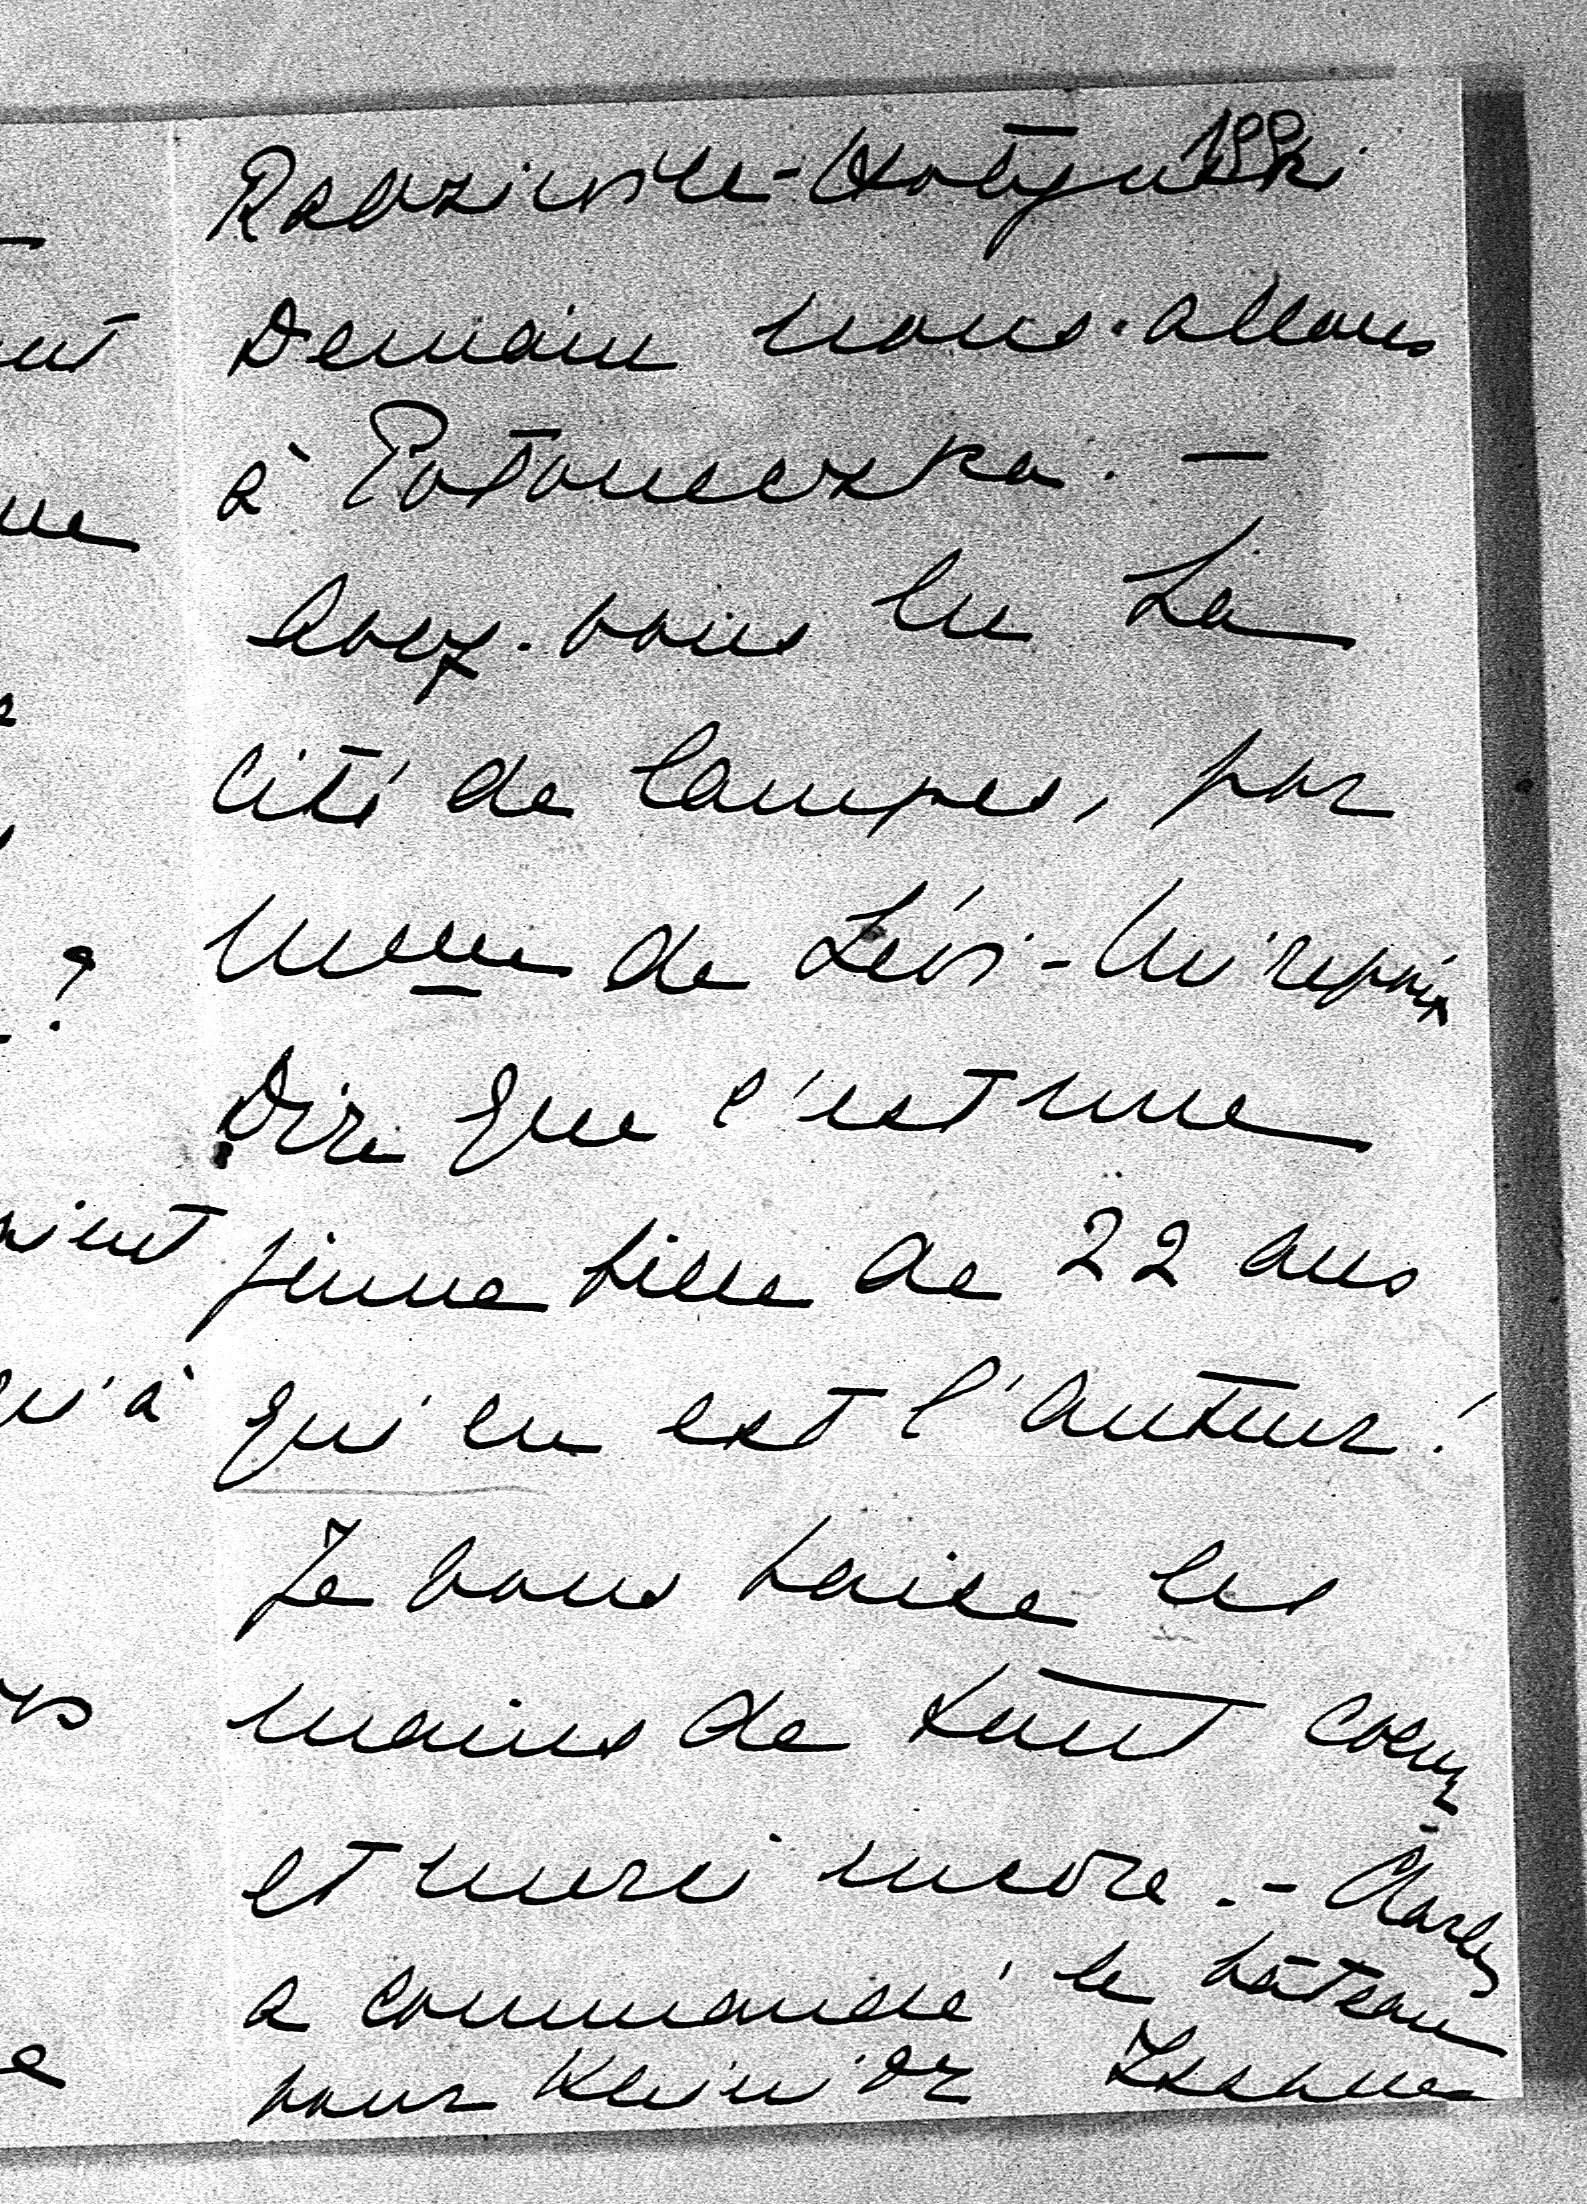 188
Radziwill-Wolynski
Demain nous allons
à Potoneczka. —
Avez-vous lu La
cité de lampes, par
Melle de Lévi-Mirepoix
Dire que c'est une
jeune fille de 22 ans
qui en est l'auteur!
Je vous baise les
mains de tout coeur
et merci encore. - Charles
a commandé le bateau
pour